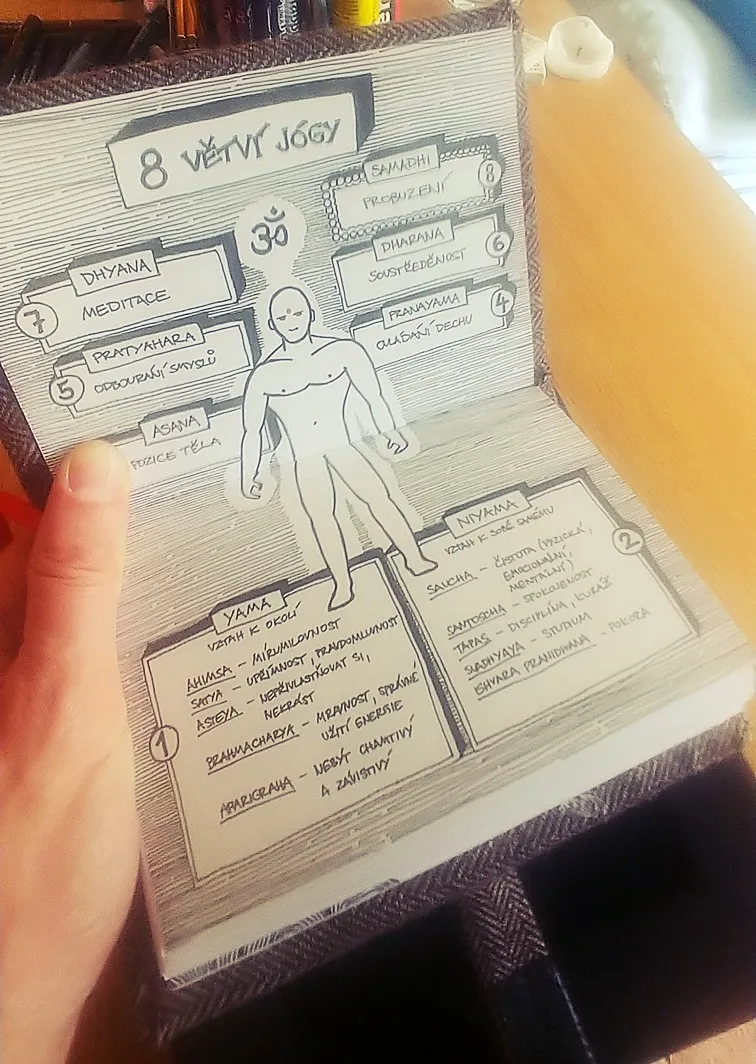 8 VĚTVÍ JÓGY
ૐ
SAMADHI
8
PROBUZENÍ
DHARANA
6
SOUSTŘEDĚNOST
PRANAYAMA
4
OVLÁDÁNÍ DECHU
DHYANA
7
MEDITACE
PRATYAHARA
5
ODBOURÁNÍ SMYSLŮ
ASANA
POZICE TĚLA
YAMA
VZTAH K OKOLÍ
1
AHIMSA - MÍRUMILOVNOST
SATYA - UPŘÍMNOST, PRAVDOMLUVNOST
ASTEYA - NEPŘIVLASTŇOVAT SI,
NEKRÁST
BRAHMACHARYA - MRAVNOST, SPRÁVNÉ
UŽITÍ ENERGIE
APARIGRAHA - NEBÝT CHAMTIVÝ
A ZÁVISTIVÝ
NIYAMA
VZTAH K SOBĚ SAMÉMU
2
SAUCHA - ČISTOTA (FYZICKÁ,
EMOCIONÁLNÍ,
MENTÁLNÍ)
SANTOSCHA - SPOKOJENOST
TAPAS - DISCIPLÍNA, KURÁŽ
SVADHYAYA - STUDIUM
ISHVARA PRANIDHANA - POKORA